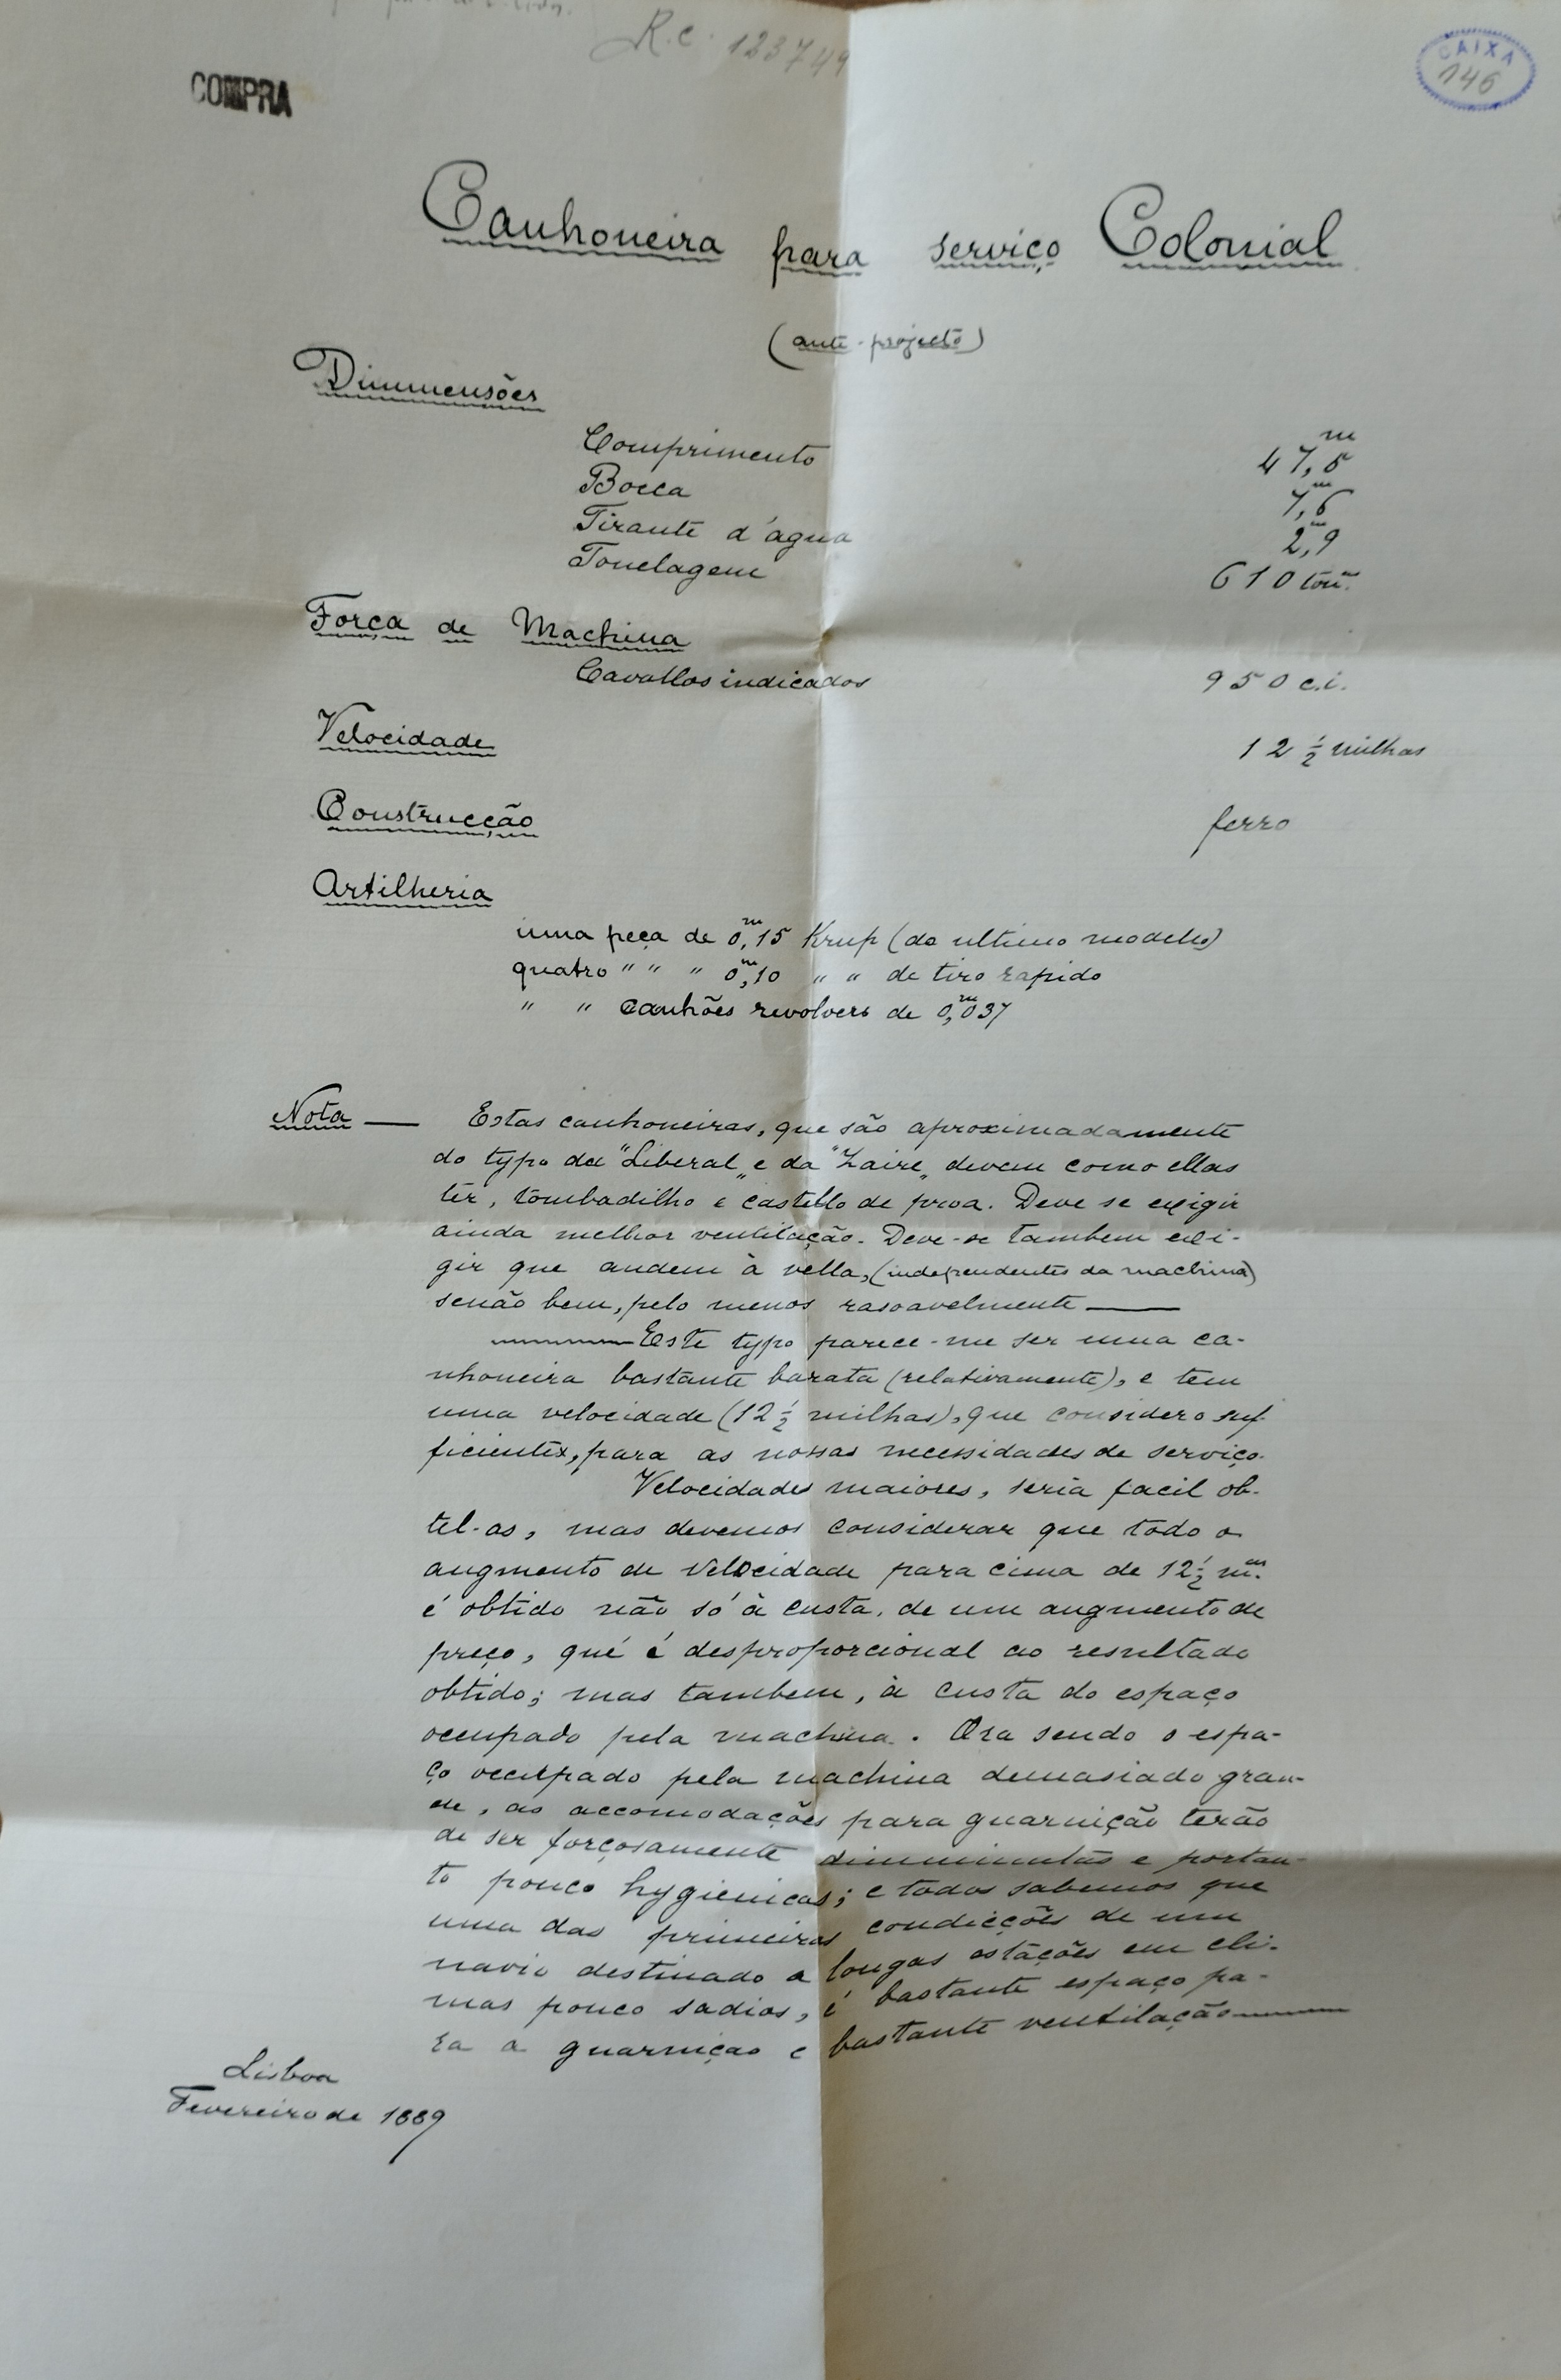 R.C. 123749
CAIXA
146
COMPRA
Canhoneira para serviço Colonial
(ante-projecto)
Dimmensões
Comprimento 47,5 m
Bocca 7,6 m
Tirante d'agua 2,9 m
Tonelagem 610 ton.
Força de Machina
Cavallos indicados 950 c.i.
Velocidade 12 ½ milhas
Construcção ferro
Artilheria
uma peça de 0,m15 Krup (do ultimo modelo)
quatro " " " 0,m10 " " de tiro rapido
" " canhões revolvers de 0,m037
Nota — Estas canhoneiras, que são aproximadamente
do typo da "Liberal" e da "Zaire" devem como ellas
ter, tombadilho e castello de proa. Deve se exigir
ainda melhor ventilação. Deve-se tambem exi-
gir que andem à vella, (independentes da machina)
senão bem, pelo menos rasoavelmente —
Este typo parece-me ser uma ca-
nhoneira bastante barata (relativamente), e tem
uma velocidade (12 ½ milhas), que considero suf-
ficiente, para as nossas necessidades de serviço.
Velocidades maiores, seria facil ob-
tel-as, mas devemos considerar que todo o
augmento de velocidade para cima de 12 ½ m.as
é obtido não só à custa, de um augmento de
preço, que é desproporcional ao resultado
obtido; mas tambem, à custa do espaço
ocupado pela machina. Ora sendo o espa-
ço occupado pela machina demasiado gran-
de, as accomodações para guarnição terão
de ser forçosamente dimminutas e portan-
to pouco hygienicas; e todos sabemos que
uma das primeiras condicções de um
navio destinado a longas estações em cli-
mas pouco sadios, é bastante espaço pa-
ra a guarnição e bastante ventilação —
Lisboa
Fevereiro de 1889